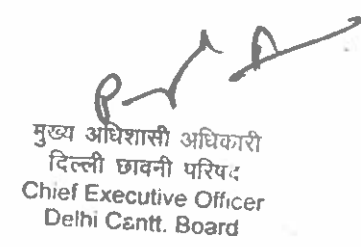 मुख्य अधिशासी अधिकारी
दिल्ली छावनी परिषद
Chief Executive Officer
Delhi Cantt. Board